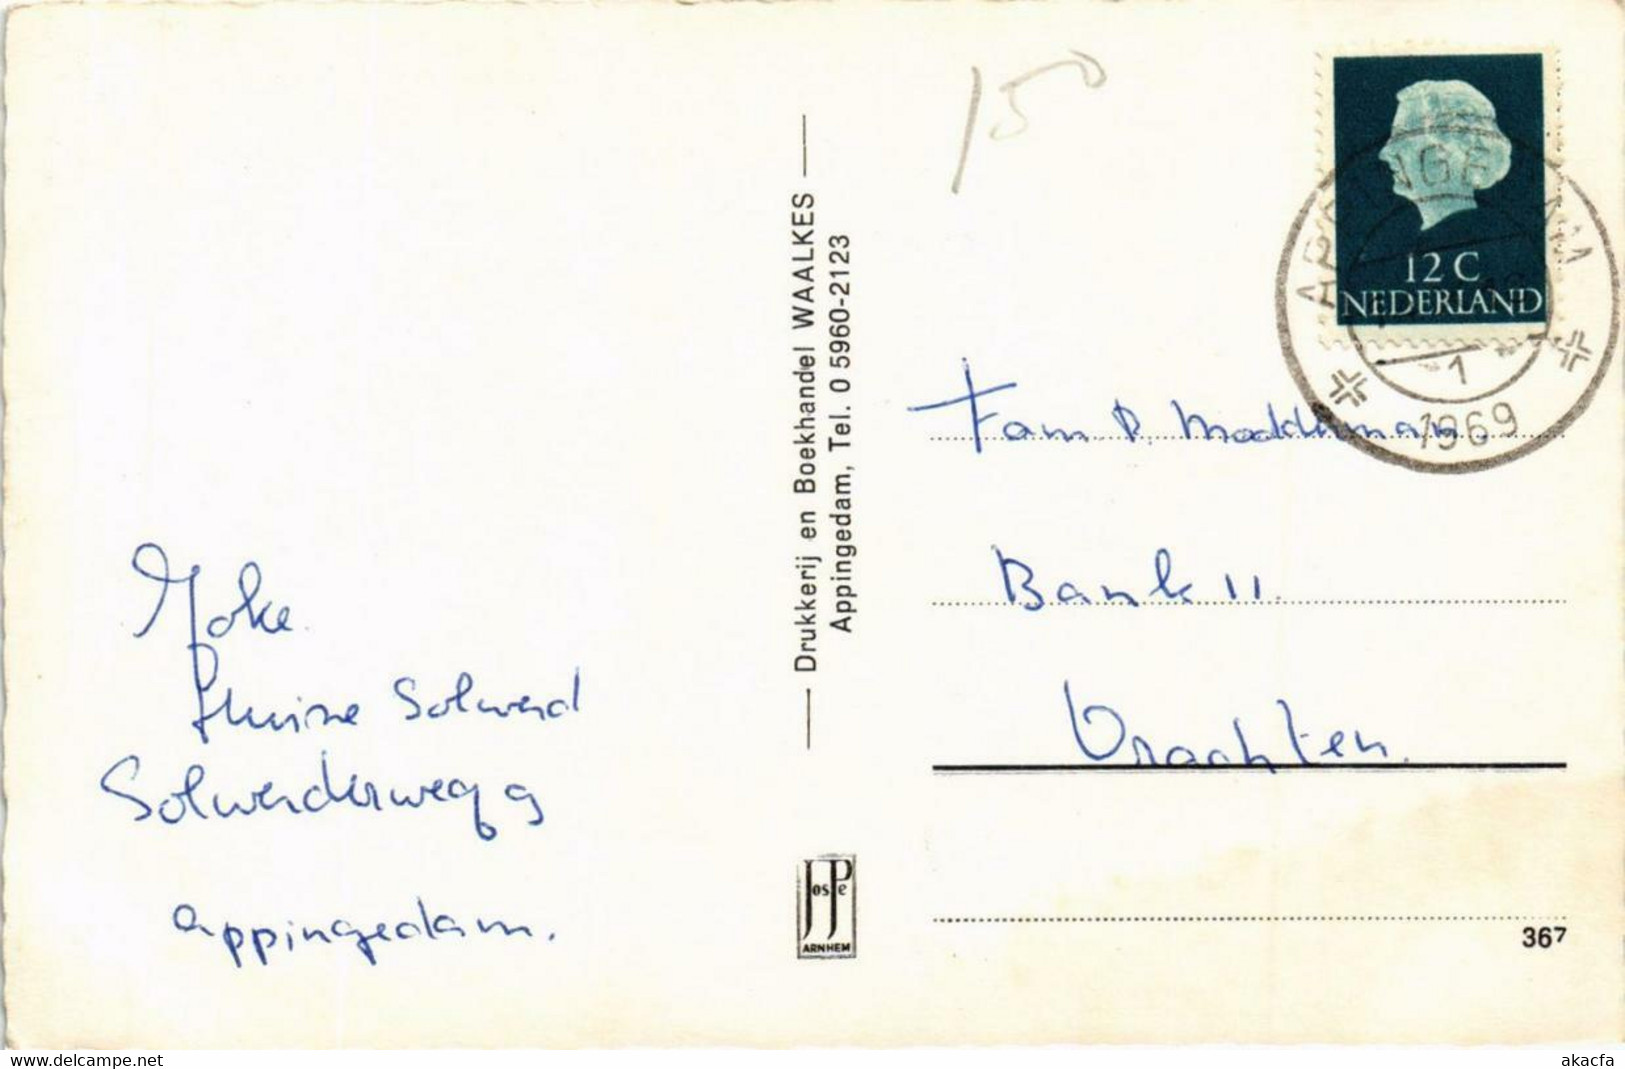 150
12 C
NEDERLAND
APPINGEDAM
1
1969
Drukkerij en Boekhandel WAALKES
Appingedam, Tel. 0 5960-2123
Fam R. Moddeman.
Bank 11.
Drachten.
Joke
Huize Solwerd
Solwerderweg 9
appingedam.
JosPe
ARNHEM
367
www.delcampe.net
akacfa